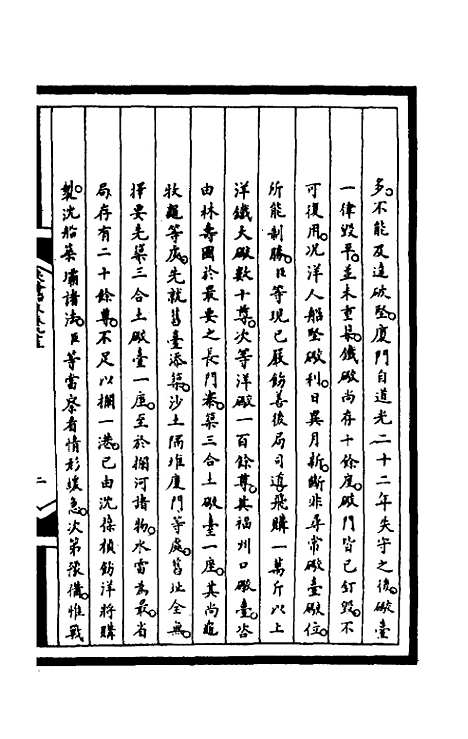 多不能及遠破堅廈門自道光二十二年失守之後礮臺
一律毀平並未重築鐵礮尚存十餘座礮門皆已釘毀不
可復用況洋人船堅礮利日異月新斷非尋常礮臺礮位
所能制勝臣等現已嚴飭善後局司道飛購一萬斤以上
洋鐵大礮數十尊次等洋礮一百餘尊其福州口礮臺咨
由林壽圖於最要之長門秦築三合土礮臺一座其尚龜
牧龜等處先就舊臺添築沙土隔堆廈門等處舊址全無
擇要先築三合土礮臺一座至於攔河諸物水雷為最省
局存有二十餘尊不足以攔一港已由沈葆楨飭洋將購
製沈船築壩諸法臣等當察看情形緩急次第豫備惟戰